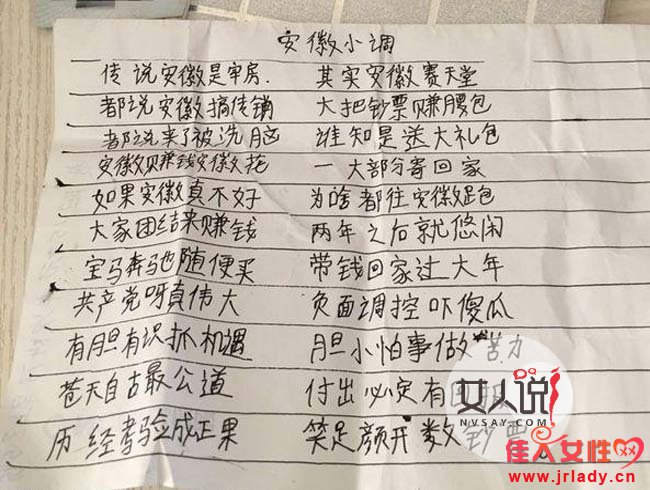 安徽小调
传说安徽是牢房. 其实安徽赛天堂
都说安徽搞传销 大把钞票赚腰包
都说来了被洗脑 谁知是送大礼包
安徽赚钱安徽花 一大部分寄回家
如果安徽真不好 为啥都往安徽跑
大家团结来赚钱 两年之后就悠闲
宝马奔驰随便买 带钱回家过大年
共产党呀真伟大 负面调控吓傻瓜
有胆有识抓机遇 胆小怕事做苦力
苍天自古最公道 付出必定有
历经考验成正果 笑逐颜开数钞票
女人说
NVSAY.COM
佳人女性网
www.jrlady.cn